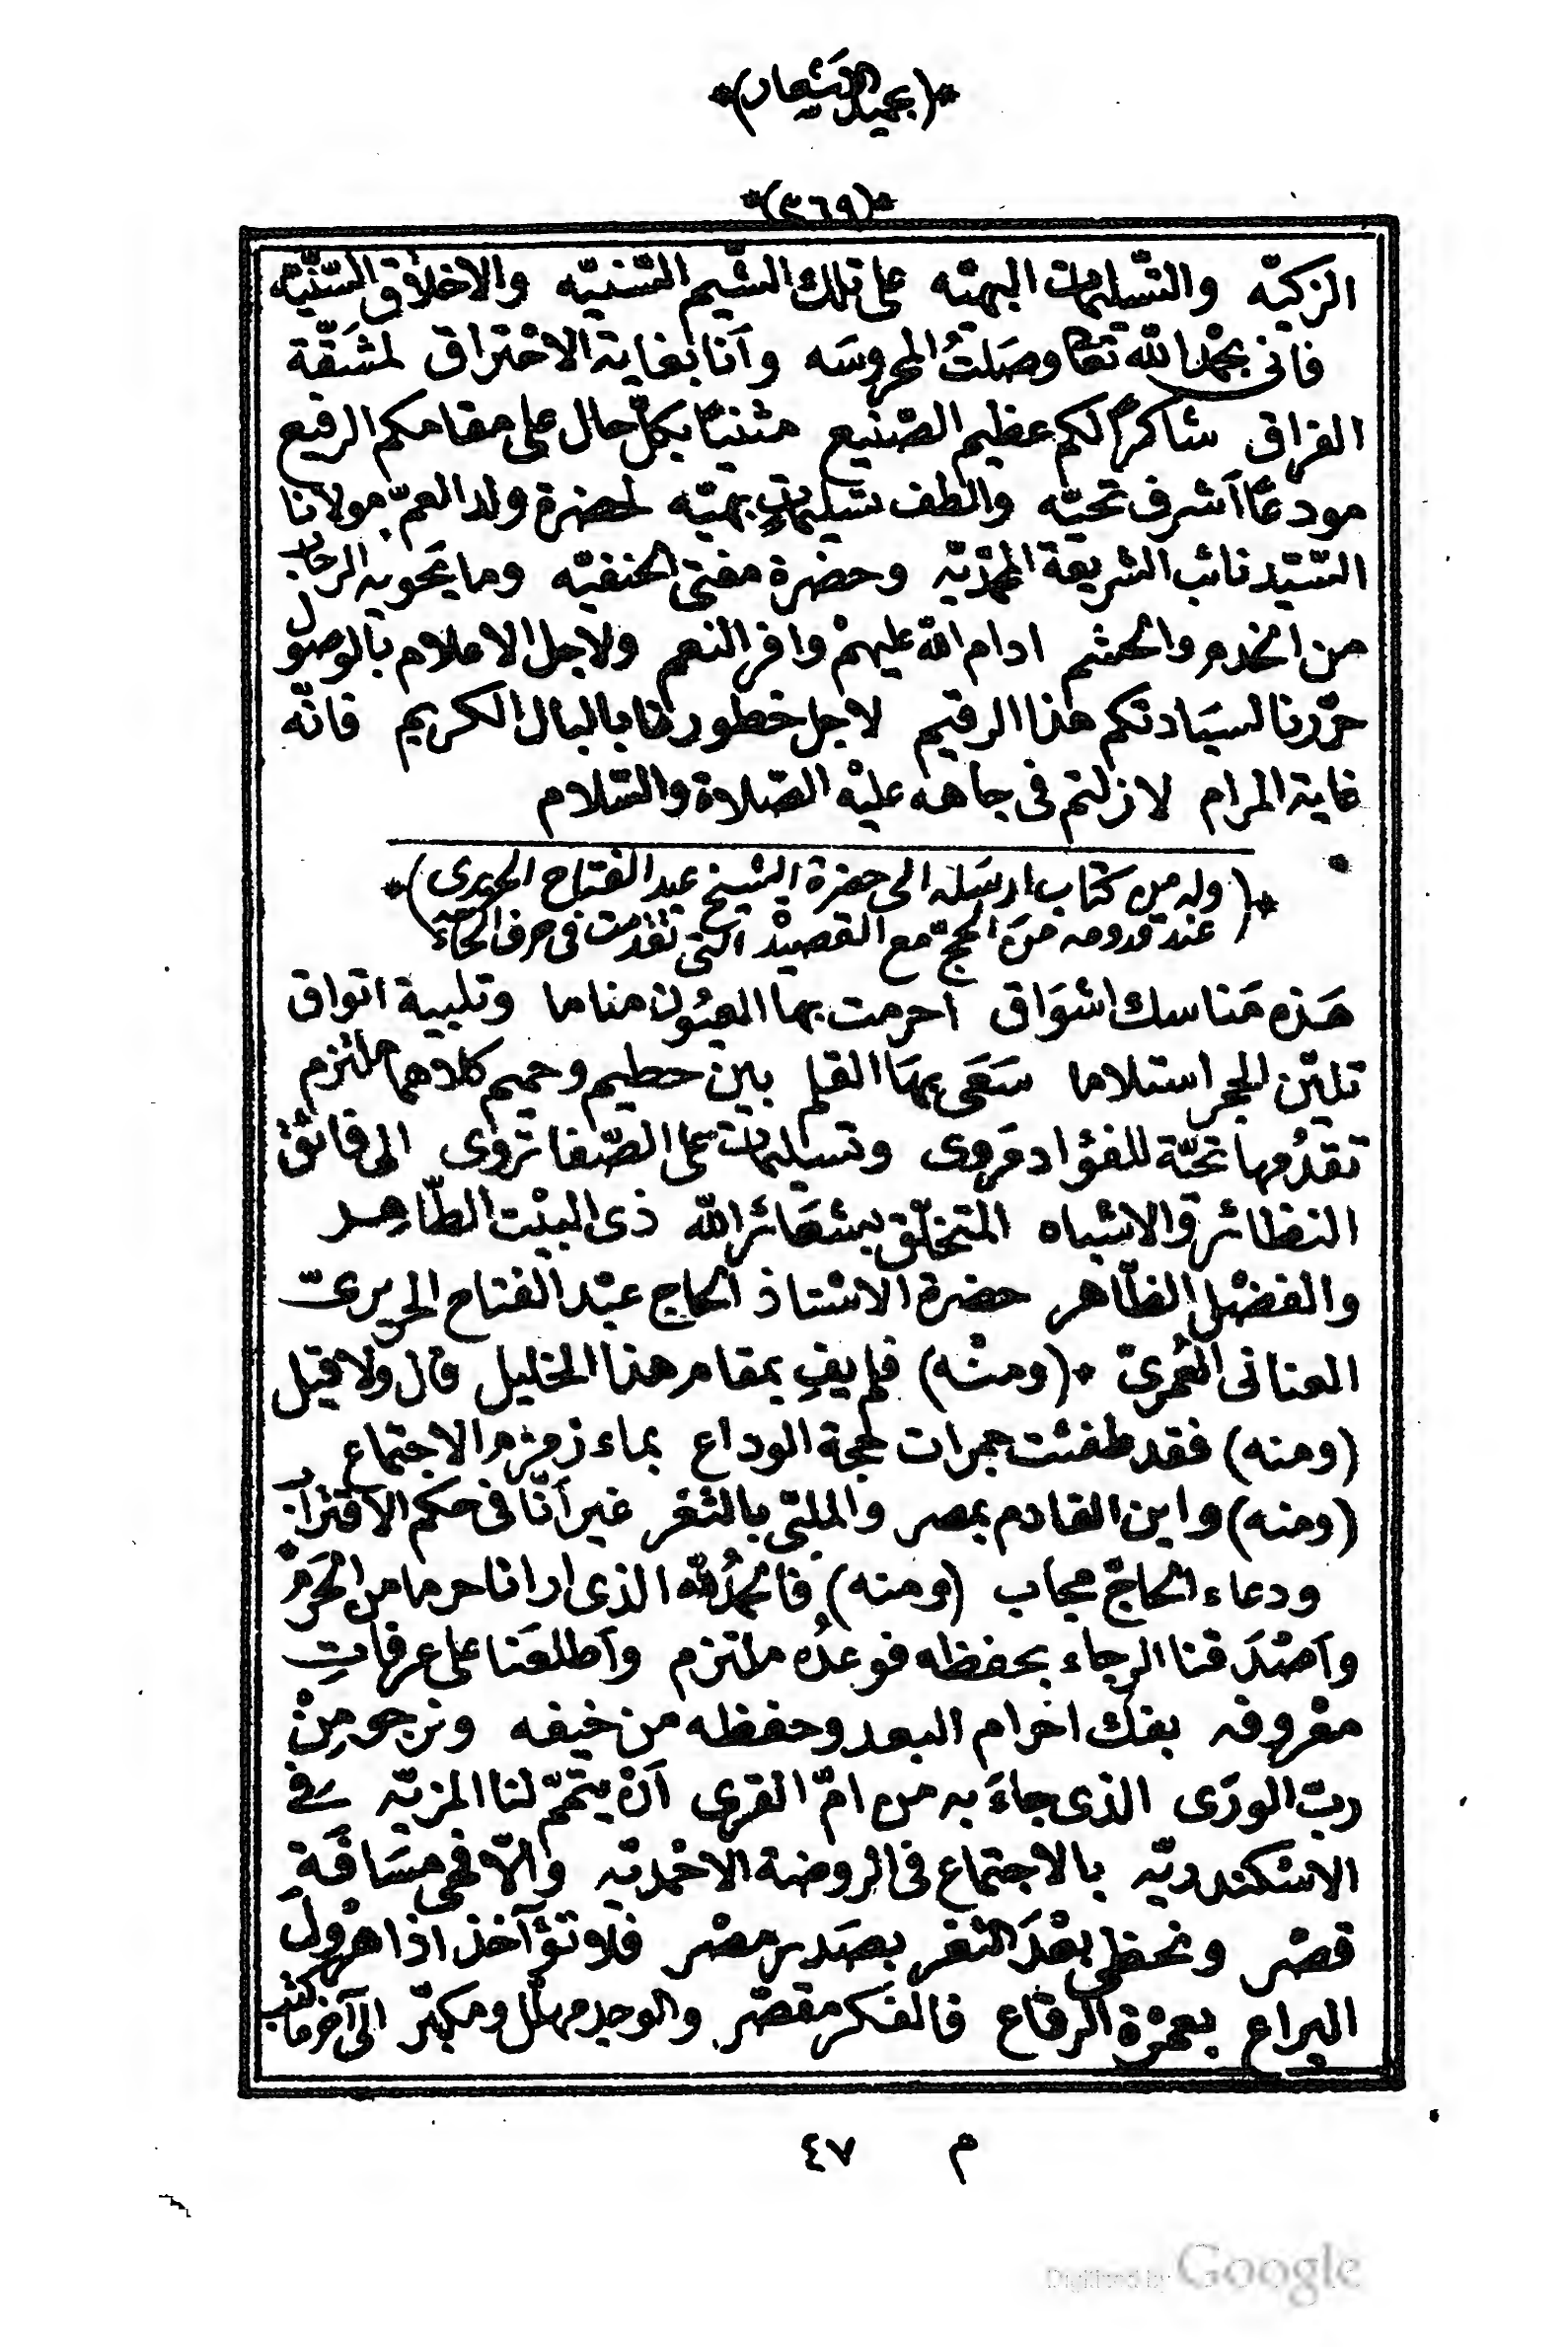 *(بحميد الشعار)*
*(٣٦٩)*
الزكيّه والتّسليمات البهيّه على تلك الشّيم السّنيّه والاخلاق السّنّيّه
فانى بحمد الله تعالى وصَلتُ المحروسَه وآنا بغاية الاحتراق لمشَقّة
الفراق شاكرًا لكم عظيم الصّنيع مثنيًا بكلّ حال على مقامكم الرفيع
مودعًا أشرف تحيّه والطف تسليماتٍ بهيّه لحضرة ولد العمّ مولانا
السّيّد نائب الشريعة المحمّديّه وحضرة مفتى الحنفيّه وما يحويه الرحاب
من الخدم والحشم ادام الله عليهمْ وافر النعم ولاجل الاعلام بالوصول
حرّرنا لسيَادتكم هذا الرقيم لاجل خطورنا بالبال الكريم فانّه
غاية المرام لا زلتم فى جاهه عليْه الصّلاة والسّلام
*(وله من كتاب ارسَله الى حضرة الشيخ عبد الفتاح الحريرى)*
عند قدومه منَ الحجّ مع القصيدْ التى تقدّمت فى حرف الحاء
هَذه مَناسك اشوَاق احرمت بها العيُون مناما وتلبية اتواق
تليّن الحجر استلاما سَعَى بهَا القلم بينَ حطيم وحميم كلاهما ملتزم
تقدُمها تحيّة للفؤاد مَروى وتسليمات على الصّفا تروى الى فائق
النظائر والاشباه المتخلّق بشعَائر الله ذى البيْت الطّاهر
والفضْل الظّاهر حضرة الاسْتاذ الحاج عبْد الفتاح الحريرىّ
العنانى العُمرىّ *(ومنْه) فلم يفِ بمقام هذا الخليل قال ولا قيل
(ومنه) فقد طفئت جمرات لحجة الوداع بماء زمزم الاجتماع
(ومنه) واين القادم بمصر والملبّى بالثغر غير أنّا فى حكم الاقتراب
ودعاء الحاجّ مجاب (ومنه) فالحمدُ لله الذى ارانا حرما من الحَرَمْ
وآصْدَقنا الرجاء بحفظه فوعدُه ملتزم وآطلعَنا على عرفاتِ
معْروفه بفكّ احرام البعد وحفظه من خيفه ونرجو مِنْ
ربّ الورَى الذى جاءَ به من امّ القرى آنْ يتمّم لنا المزيّه فى
الاسْكندريّه بالاجتماع فى الروضة الاحْمديّه والّا ففى مسَافَةِ
قصْر ونحظى بعْدَ الثغر بصَدر مصْر فلا تؤآخذ اذا هرْولَ
اليراع بعمرْة الرقاع فالفكر مقصّر والوجد مهلّل ومكبّر الى آخر ما كتب
م ٤٧
Digitized by Google